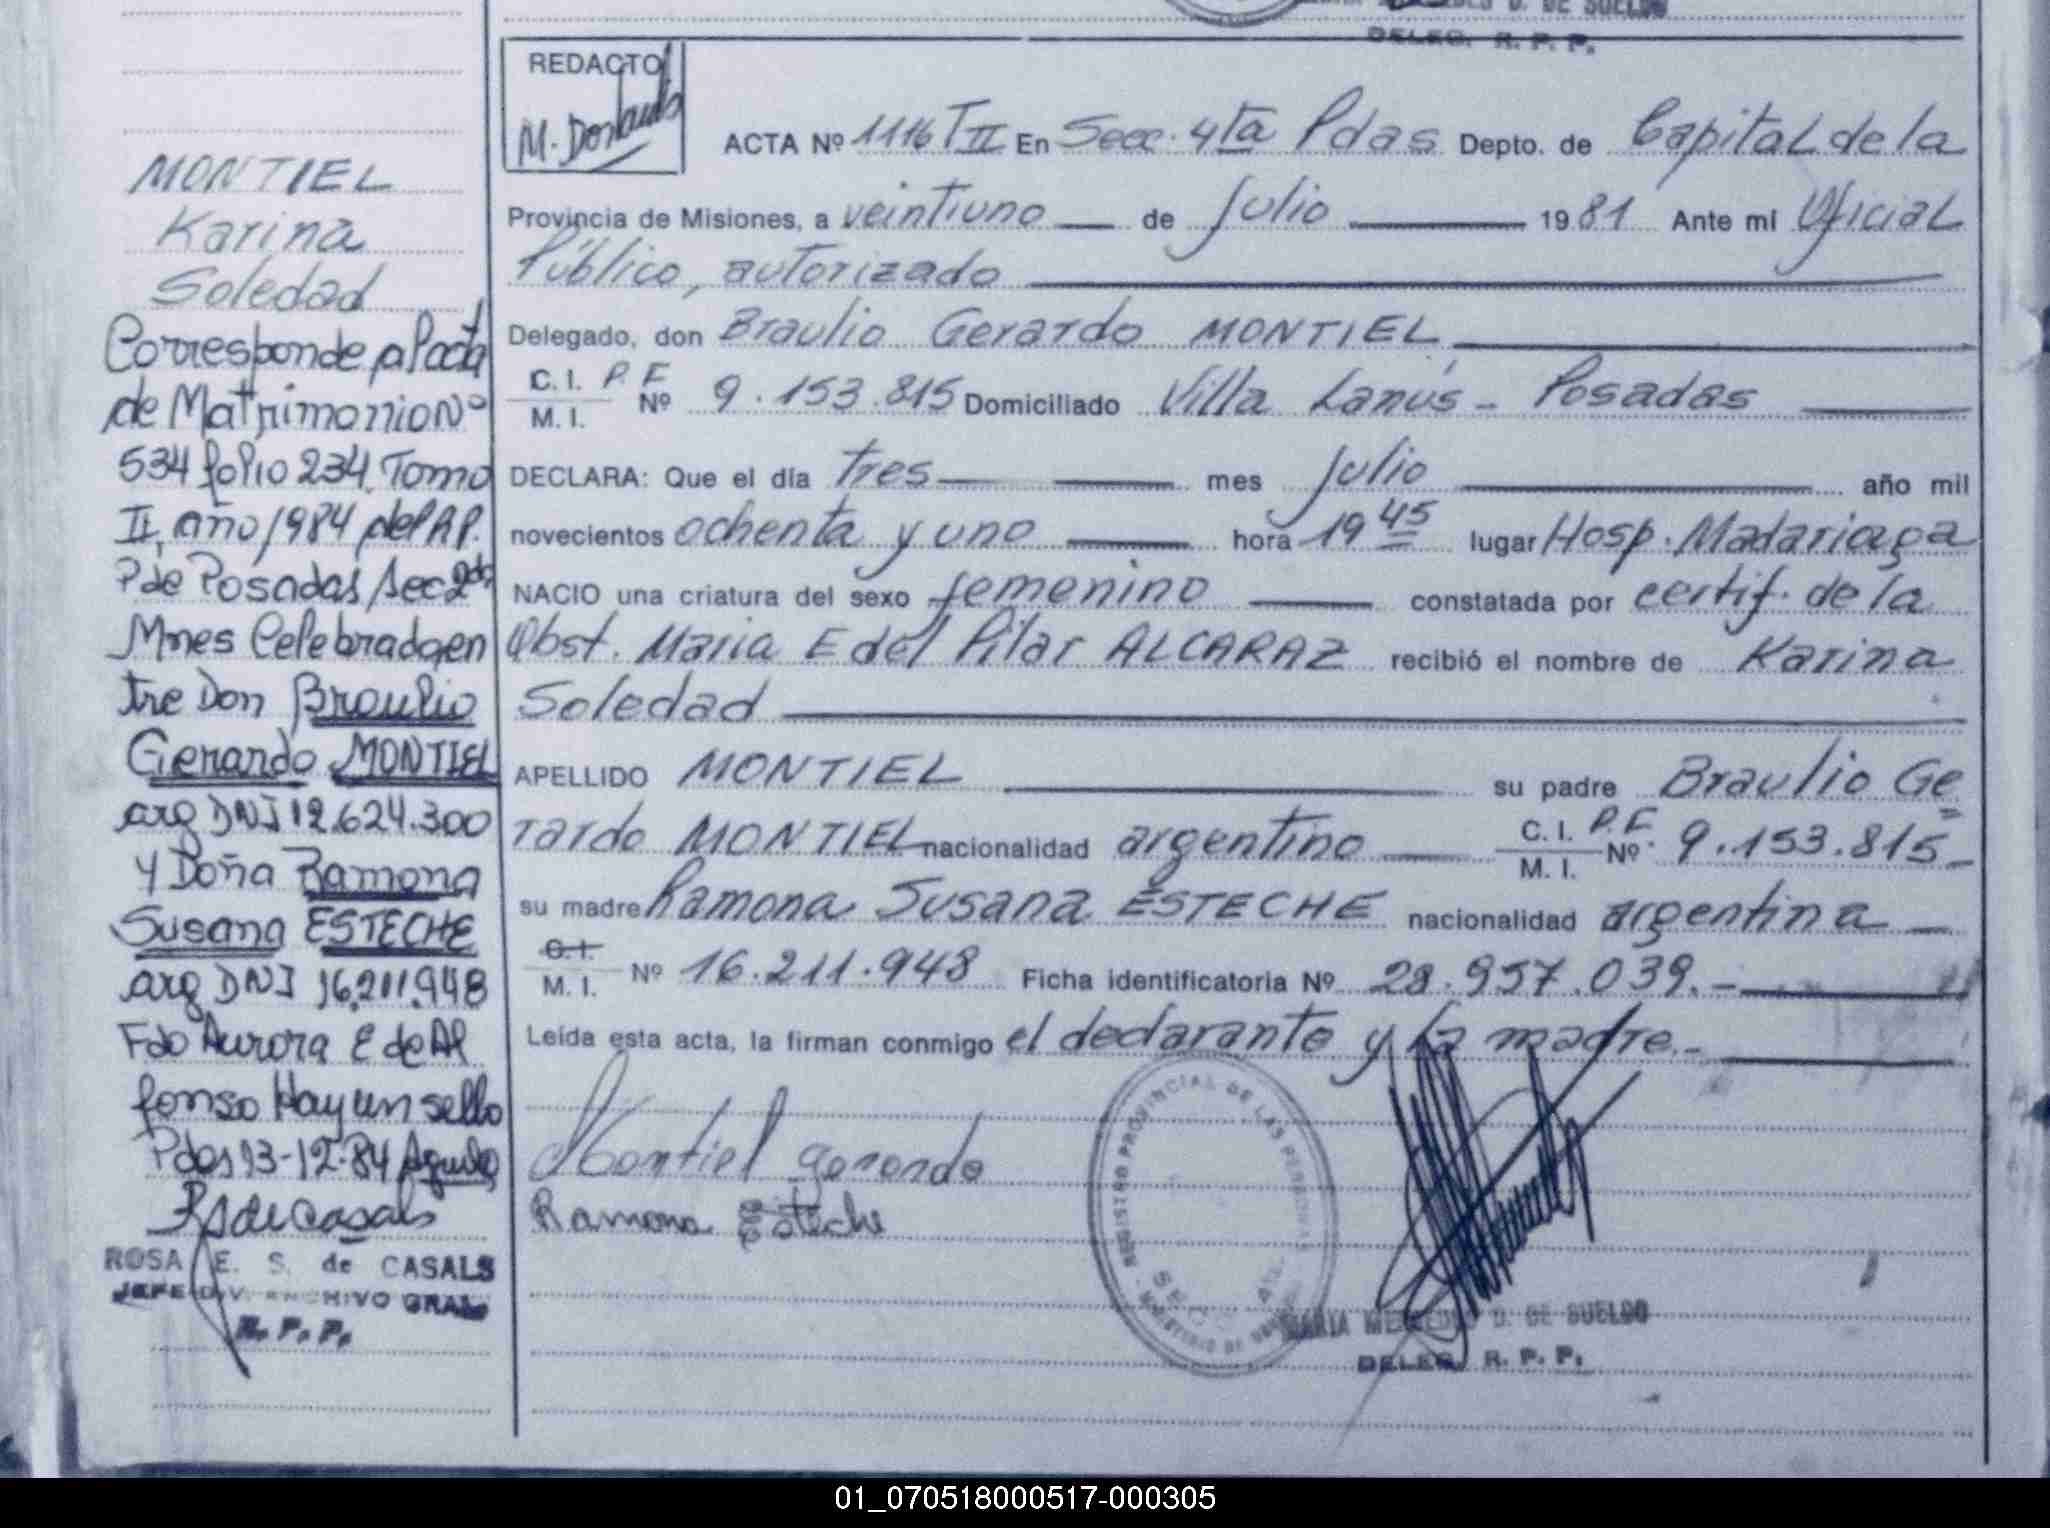 D. DE SUELDO
DELEG. R. P. P.
REDACTO
M.
ACTA Nº 1116 T II En Secc. 4ta Pdas Depto. de Capital de la
Provincia de Misiones, a veintiuno de Julio 1981 Ante mi Oficial
Público, autorizado
Delegado, don Braulio Gerardo MONTIEL
C. I. P. F.
M. I. Nº 9.153.815 Domiciliado Villa Lanús - Posadas
DECLARA: Que el día tres mes Julio año mil
novecientos ochenta y uno hora 19 45 lugar Hosp. Madariaga
NACIO una criatura del sexo femenino constatada por certif. de la
Obst. Maria E del Pilar ALCARAZ recibió el nombre de Karina
Soledad
APELLIDO MONTIEL su padre Braulio Ge
rardo MONTIEL nacionalidad argentino C. I. P. F. M. I. Nº 9.153.815-
su madre Ramona Susana ESTECHE nacionalidad argentina
C. I. M. I. Nº 16.211.948 Ficha identificatoria Nº 28.957.039.-
Leída esta acta, la firman conmigo el declarante y la madre.-
Montiel gerardo
Ramona Esteche
REGISTRO PROVINCIAL DE LAS PERSONAS
MINISTERIO DE
D. DE SUELDO
DELEG. R. P. P.
MONTIEL
Karina
Soledad
Corresponde al acta
de Matrimonio Nº
534 folio 234 Tomo
II, año 1984 del R.P.
P de Posadas, Sec 2da
Mnes Celebrado en
tre Don Braulio
Gerardo MONTIEL
arg DNI 12.624.300
y Doña Ramona
Susana ESTECHE
arg DNI 16.211.948
Fdo Aurora E de Al
fonso Hay un sello
Pdas 13-12-84
RS de Casals
ROSA E. S. de CASALS
JEFE DIV. ARCHIVO GRAL.
R. P. P.
01_070518000517-000305